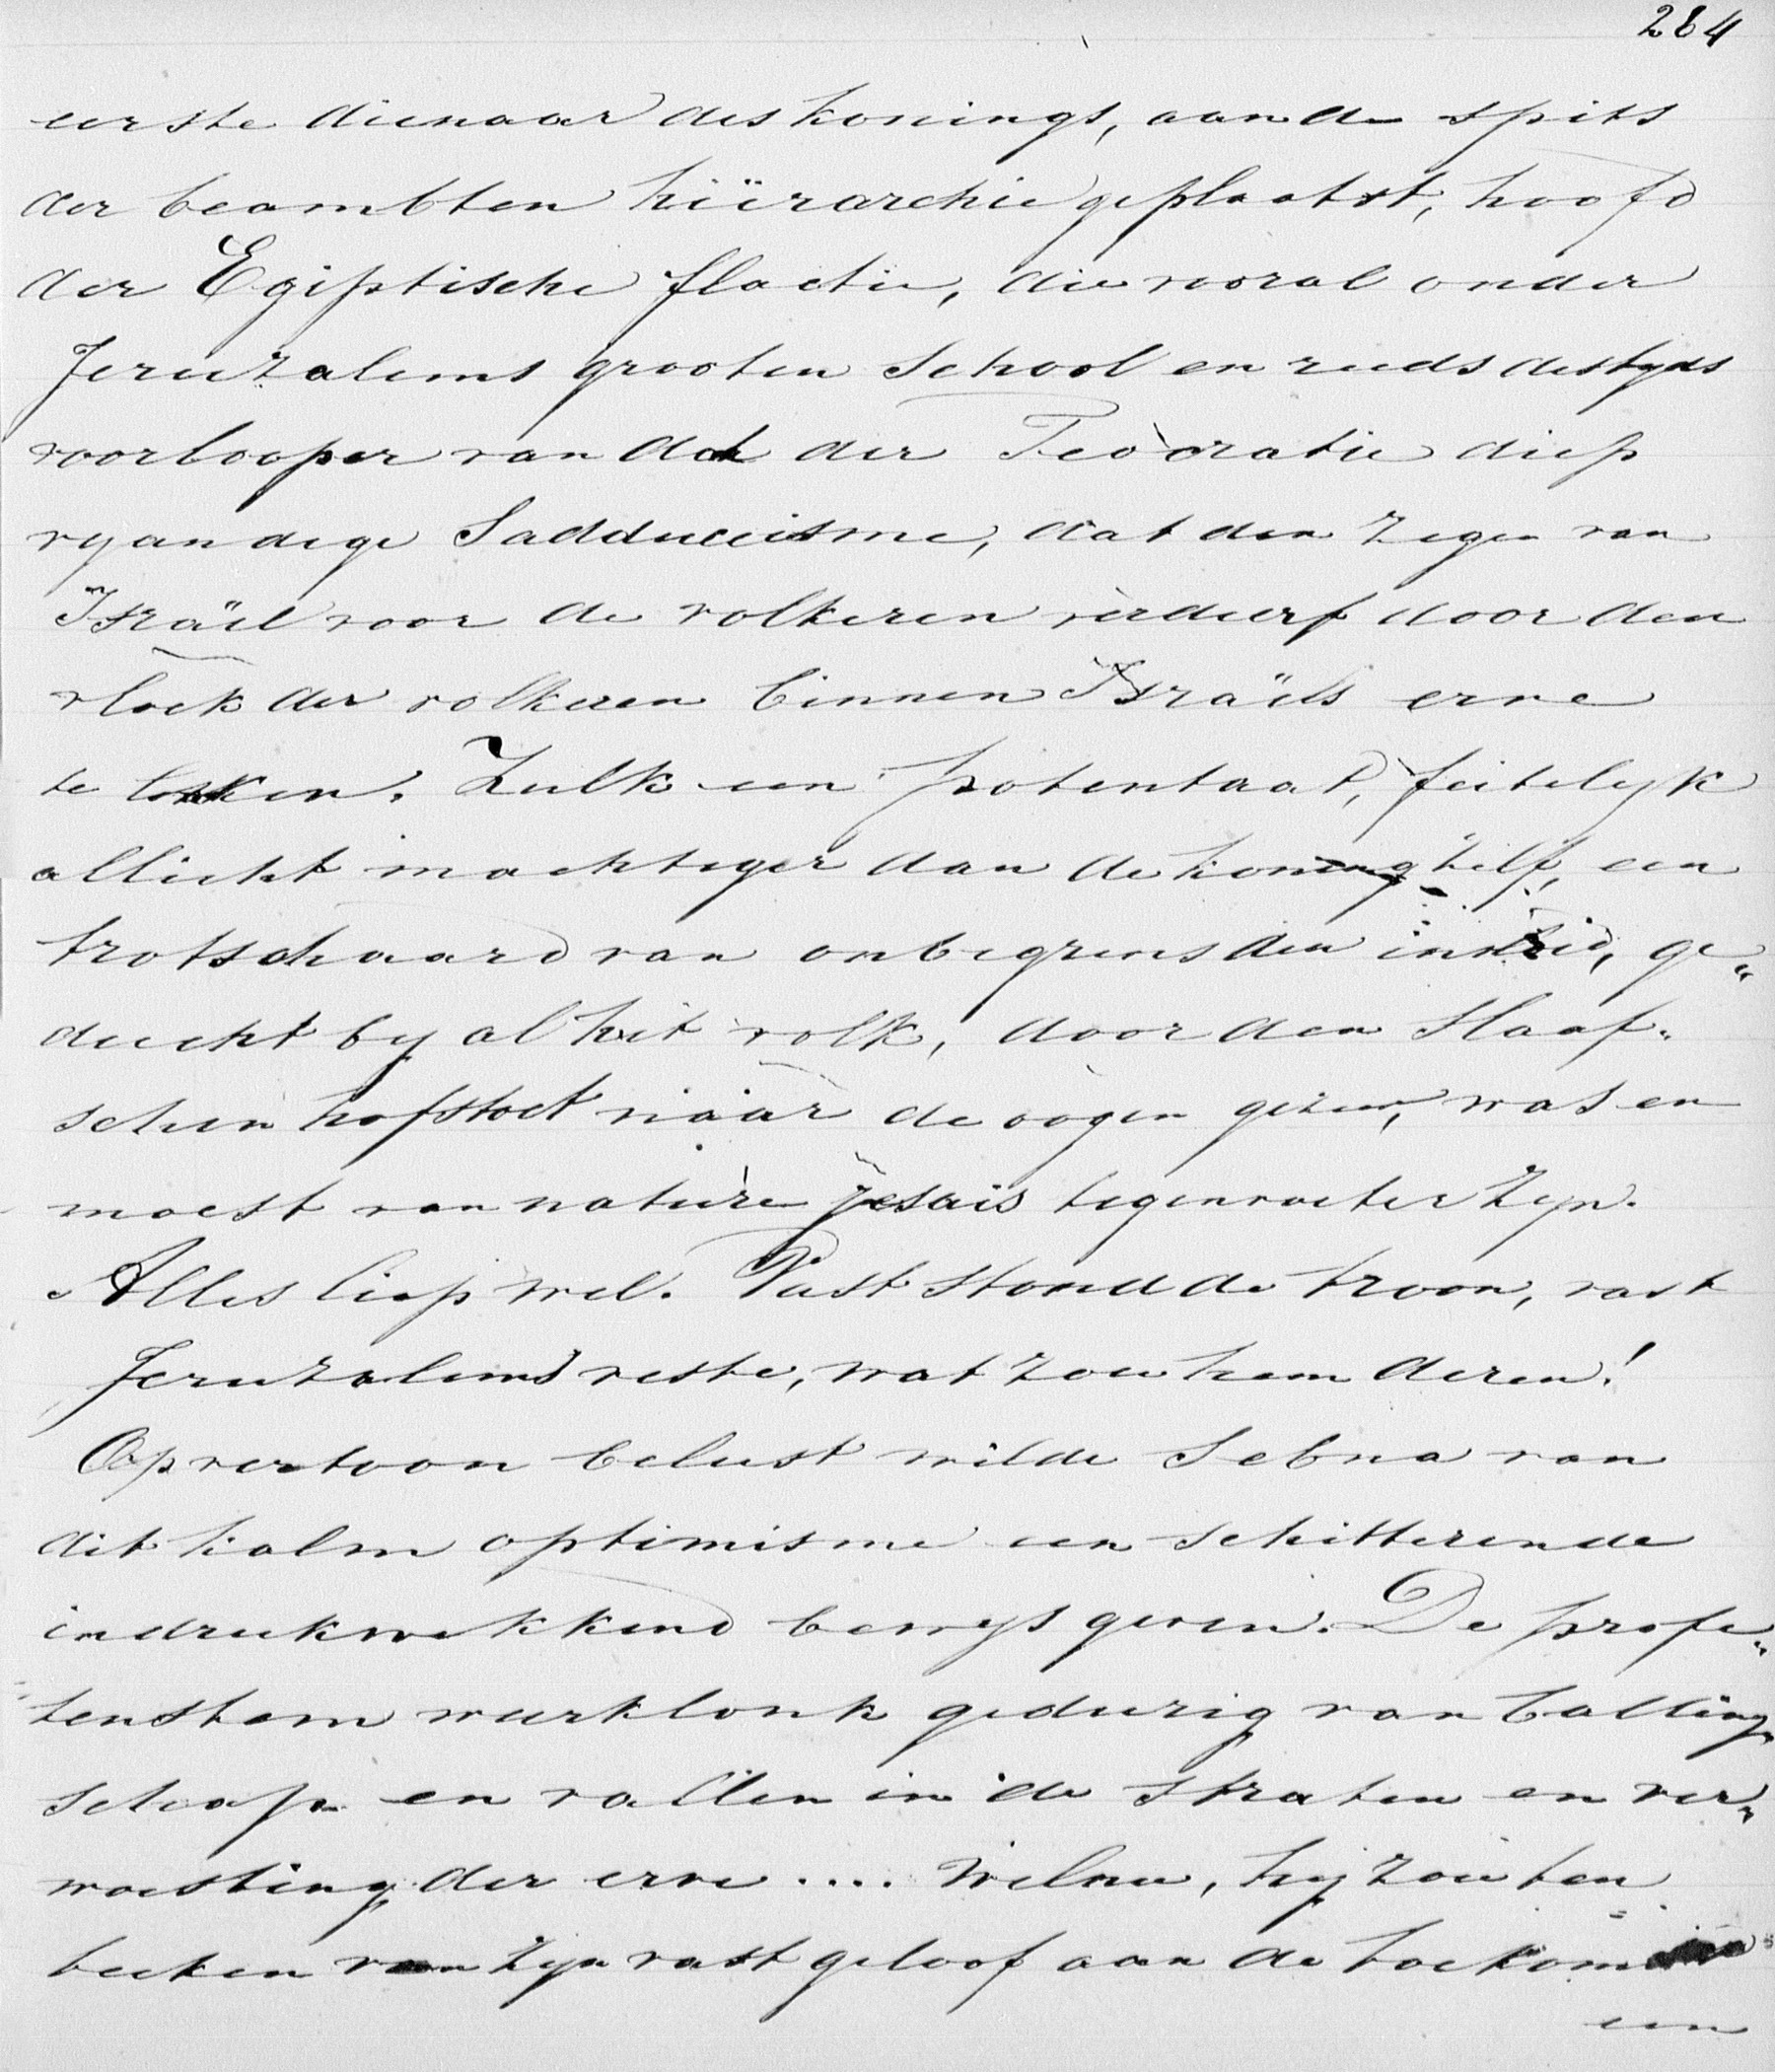 284
eerste dienaar des konings, aan de spits
der beambten hiërarchie geplaatst, hoofd
der Egiptische flactie, die vooral onder
Jeruzalems grooten school en reeds destyds
voorlooper van dat der Teocratie diep
vyandige Sadduceisme, dat den zegen van
Israël voor de volkeren verdierf door den
vloek der volkeren binnen Israëls erve
te lokken. Zulk een potentaat, feitelyk
allicht machtiger dan de koning zelf, een
trotschaard van onbegrensden invloed, ge„
ducht by al het volk, door den slaaf„
schen hofstoet naar de oogen gezien, was en
moest van nature Jesaïs tegenvoeter zyn.
Alles liep wel. Vast stond de troon, vast
Jeruzalems veste, wat zou hem deren!
Op vertoon belust wilde Sebna van
dit kalm optimisme een schitterende
indrukwekkend bewys geven. De profe„
„tenstem weerklonk gedurig van balling„
schap en vallen in de straten en ver„
woesting der erve .... Welnu, hij zou ten
teeken van zyn vast geloof aan de toekomst
een